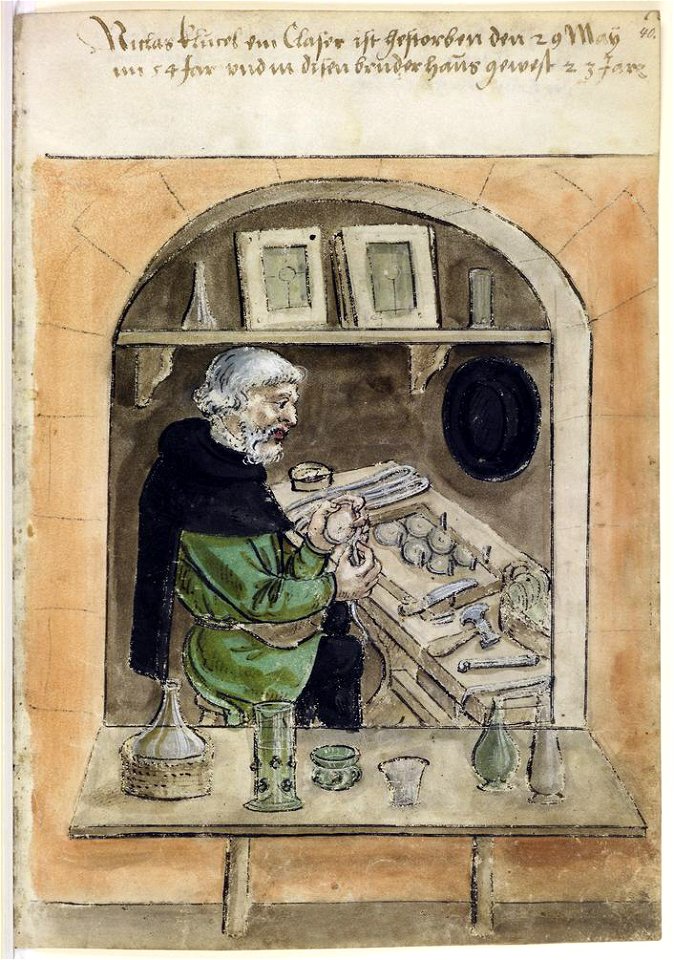 Niclas klucel ein Glaser ist gestorben den 29 May
im 54 Jar vnd in disen bruderhaus gewest 23 Jare
40.